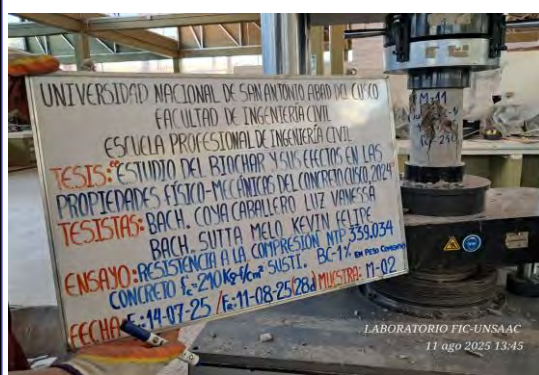 UNIVERSIDAD NACIONAL DE SAN ANTONIO ABAD DEL CUSCO
FACULTAD DE INGENIERÍA CIVIL
ESCUELA PROFESIONAL DE INGENIERÍA CIVIL
TESIS: "ESTUDIO DEL BIOCHAR Y SUS EFECTOS EN LAS
PROPIEDADES FÍSICO-MECÁNICAS DEL CONCRETO,CUSCO,2024"
TESISTAS: BACH. COYA CABALLERO LUZ VANESSA
BACH. SUTTA MELO KEVIN FELIPE
ENSAYO: RESISTENCIA A LA COMPRESIÓN NTP 339.034
CONCRETO f'c=210 Kg-f/cm² SUSTI. BC-1% EN PESO CEMENTO
FECHA: 14-07-25 / FR: 11-08-25(28d) MUESTRA: M-02
M-11
LABORATORIO FIC-UNSAAC
11 ago 2025 13:45